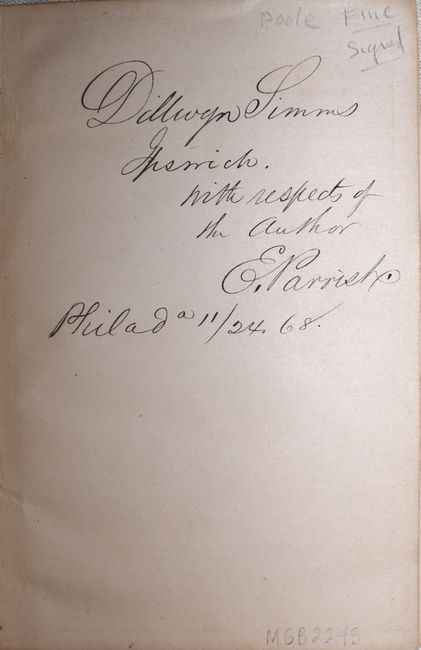 Poole Fine
Signed
Dillwyn Simms
Ipswich.
with respects of
the Author
E. Parrish.
Philadᵃ 11/24. 68.
MGB2245